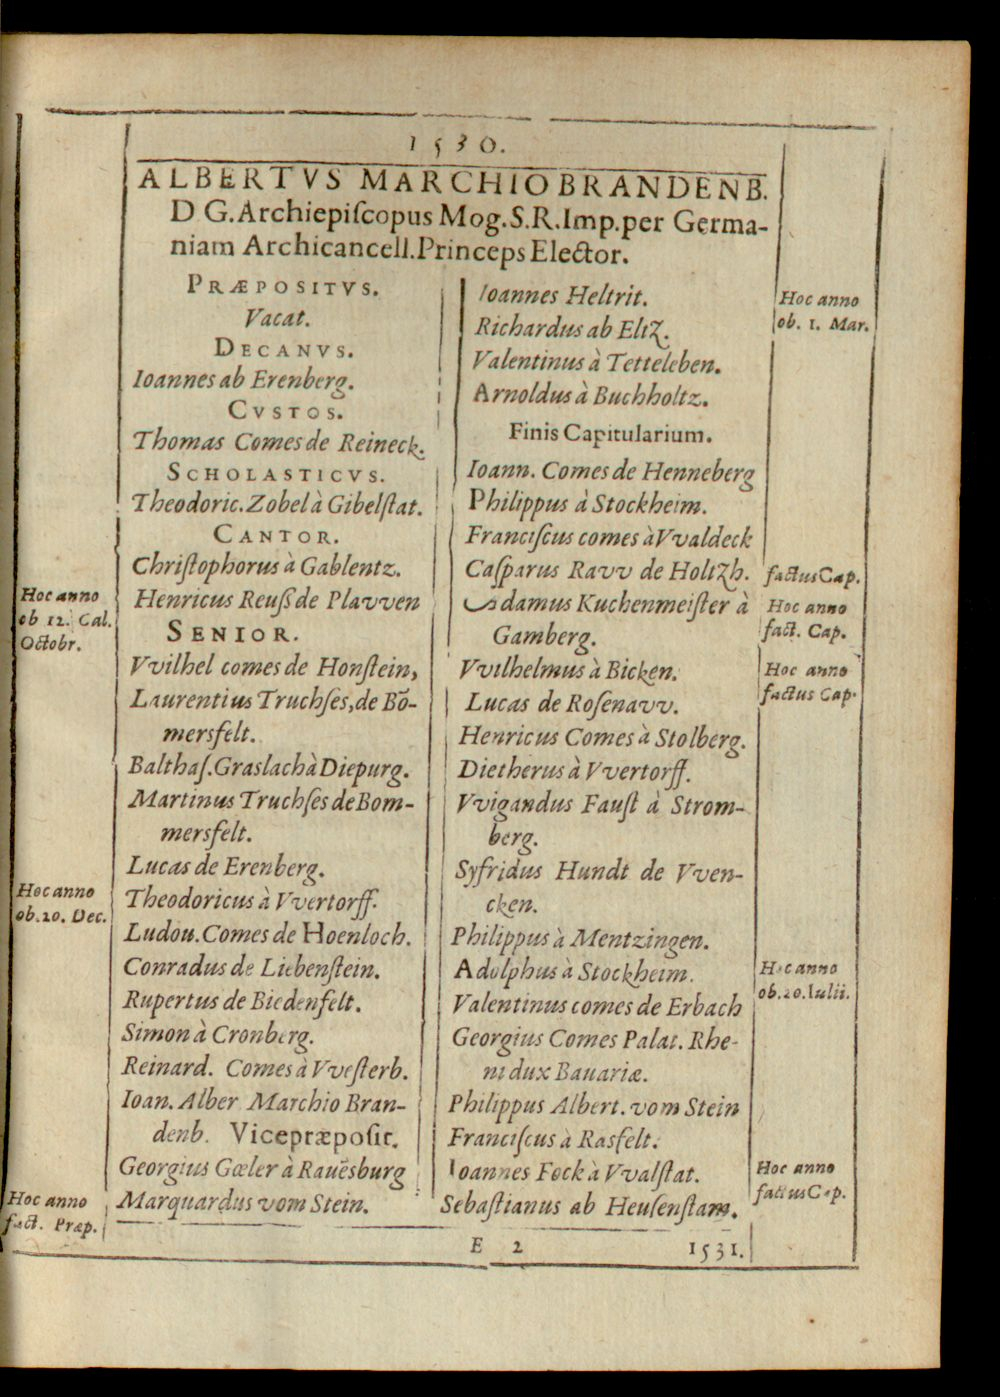 1530.
ALBERTVS MARCHIO BRANDENB.
D G. Archiepiſcopus Mog. S. R. Imp. per Germa-
niam Archicancell. Princeps Elector.
PRÆPOSITVS.
Vacat.
DECANVS.
Ioannes ab Erenberg.
CVSTOS.
Thomas Comes de Reineck.
SCHOLASTICVS.
Theodoric. Zobel à Gibelſtat.
CANTOR.
Chriſtophorus à Gablentz.
Hoc anno
ob 12. Cal.
Octobr.
Henricus Reuſs de Plavven
SENIOR.
Vvilhel comes de Honſtein,
Laurentius Truchſes, de Bō-
mersfelt.
Balthaſ. Graslach à Diepurg.
Martinus Truchſes de Bom-
mersfelt.
Lucas de Erenberg.
Hoc anno
ob. 20. Dec.
Theodoricus à Vvertorff.
Ludou. Comes de Hoenloch.
Conradus de Liebenſtein.
Rupertus de Biedenfelt.
Simon à Cronberg.
Reinard. Comes à Vveſterb.
Ioan. Alber Marchio Bran-
denb. Vicepræpoſit.
Georgius Gœler à Rauēsburg
Hoc anno
fact. Præp.
Marquardus vom Stein.
Ioannes Heltrit.
Hoc anno
ob. 1. Mar.
Richardus ab Eltz.
Valentinus à Tetteleben.
Arnoldus à Buchholtz.
Finis Capitularium.
Ioann. Comes de Henneberg
Philippus à Stockheim.
Franciſcus comes à Vvaldeck
Caſparus Ravv de Holtzh.
factus Cap.
damus Kuchenmeiſter à
Gamberg.
Hoc anno
fact. Cap.
Vvilhelmus à Bicken.
Hoc anno
factus Cap.
Lucas de Roſenavv.
Henricus Comes à Stolberg.
Dietherus à Vvertorff.
Vvigandus Fauſt à Strom-
berg.
Syfridus Hundt de Vven-
cken.
Philippus à Mentzingen.
Adolphus à Stockheim.
Hoc anno
ob. 20. Iulii.
Valentinus comes de Erbach
Georgius Comes Palat. Rhe-
ni dux Bauariæ.
Philippus Albert. vom Stein
Franciſcus à Rasfelt.
Ioannes Fock à Vvalſtat.
Hoc anno
factus Cap.
Sebaſtianus ab Heuſenſtam.
E 2
1531.